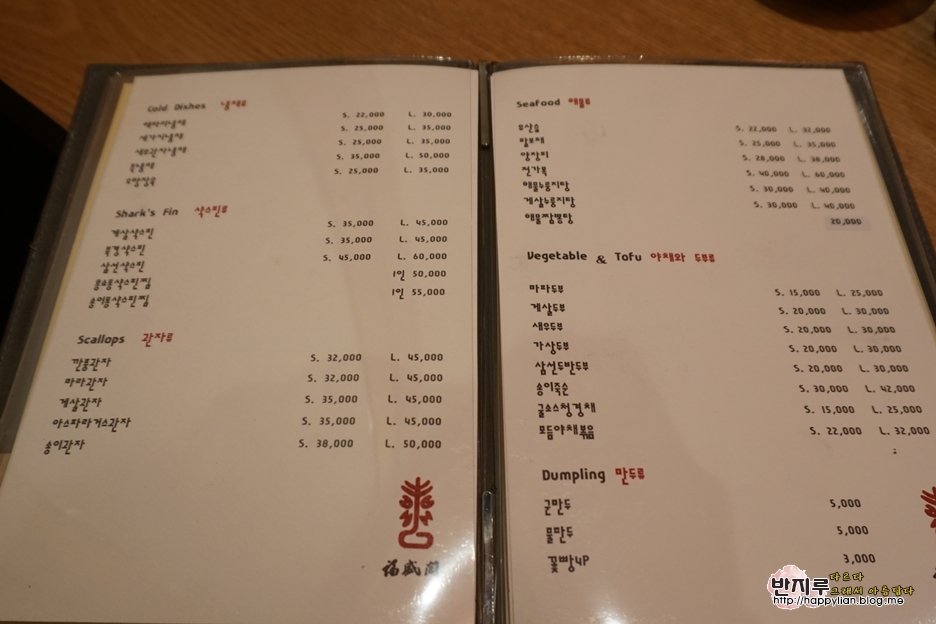 Cold Dishes 냉채류
해파리냉채 S. 22,000 L. 30,000
세가지냉채 S. 25,000 L. 35,000
새우관자냉채 S. 25,000 L. 35,000
S. 35,000 L. 50,000
오향장육 S. 25,000 L. 35,000
Shark's Fin 샥스핀류
게살샥스핀 S. 35,000 L. 45,000
북경샥스핀 S. 35,000 L. 45,000
삼선샥스핀 S. 45,000 L. 60,000
홍소통샥스핀찜 1인 50,000
송이통샥스핀찜 1인 55,000
Scallops 관자류
깐풍관자 S. 32,000 L. 45,000
마라관자 S. 32,000 L. 45,000
게살관자 S. 35,000 L. 45,000
아스파라거스관자 S. 35,000 L. 45,000
송이관자 S. 38,000 L. 50,000
Seafood 해물류
유산슬 S. 22,000 L. 32,000
팔보채 S. 25,000 L. 35,000
양장피 S. 28,000 L. 38,000
전가복 S. 40,000 L. 60,000
해물누룽지탕 S. 30,000 L. 40,000
게살누룽지탕 S. 30,000 L. 40,000
해물짬뽕탕 20,000
Vegetable & Tofu 야채와 두부류
마파두부 S. 15,000 L. 25,000
게살두부 S. 20,000 L. 30,000
새우두부 S. 20,000 L. 30,000
가상두부 S. 20,000 L. 30,000
삼선두반두부 S. 20,000 L. 30,000
송이죽순 S. 30,000 L. 42,000
굴소스청경채 S. 15,000 L. 25,000
모듬야채볶음 S. 22,000 L. 32,000
Dumpling 만두류
군만두 5,000
물만두 5,000
꽃빵4P 3,000
福盛閣
반지루 다르다
그래서 아름답다
http://happylian.blog.me